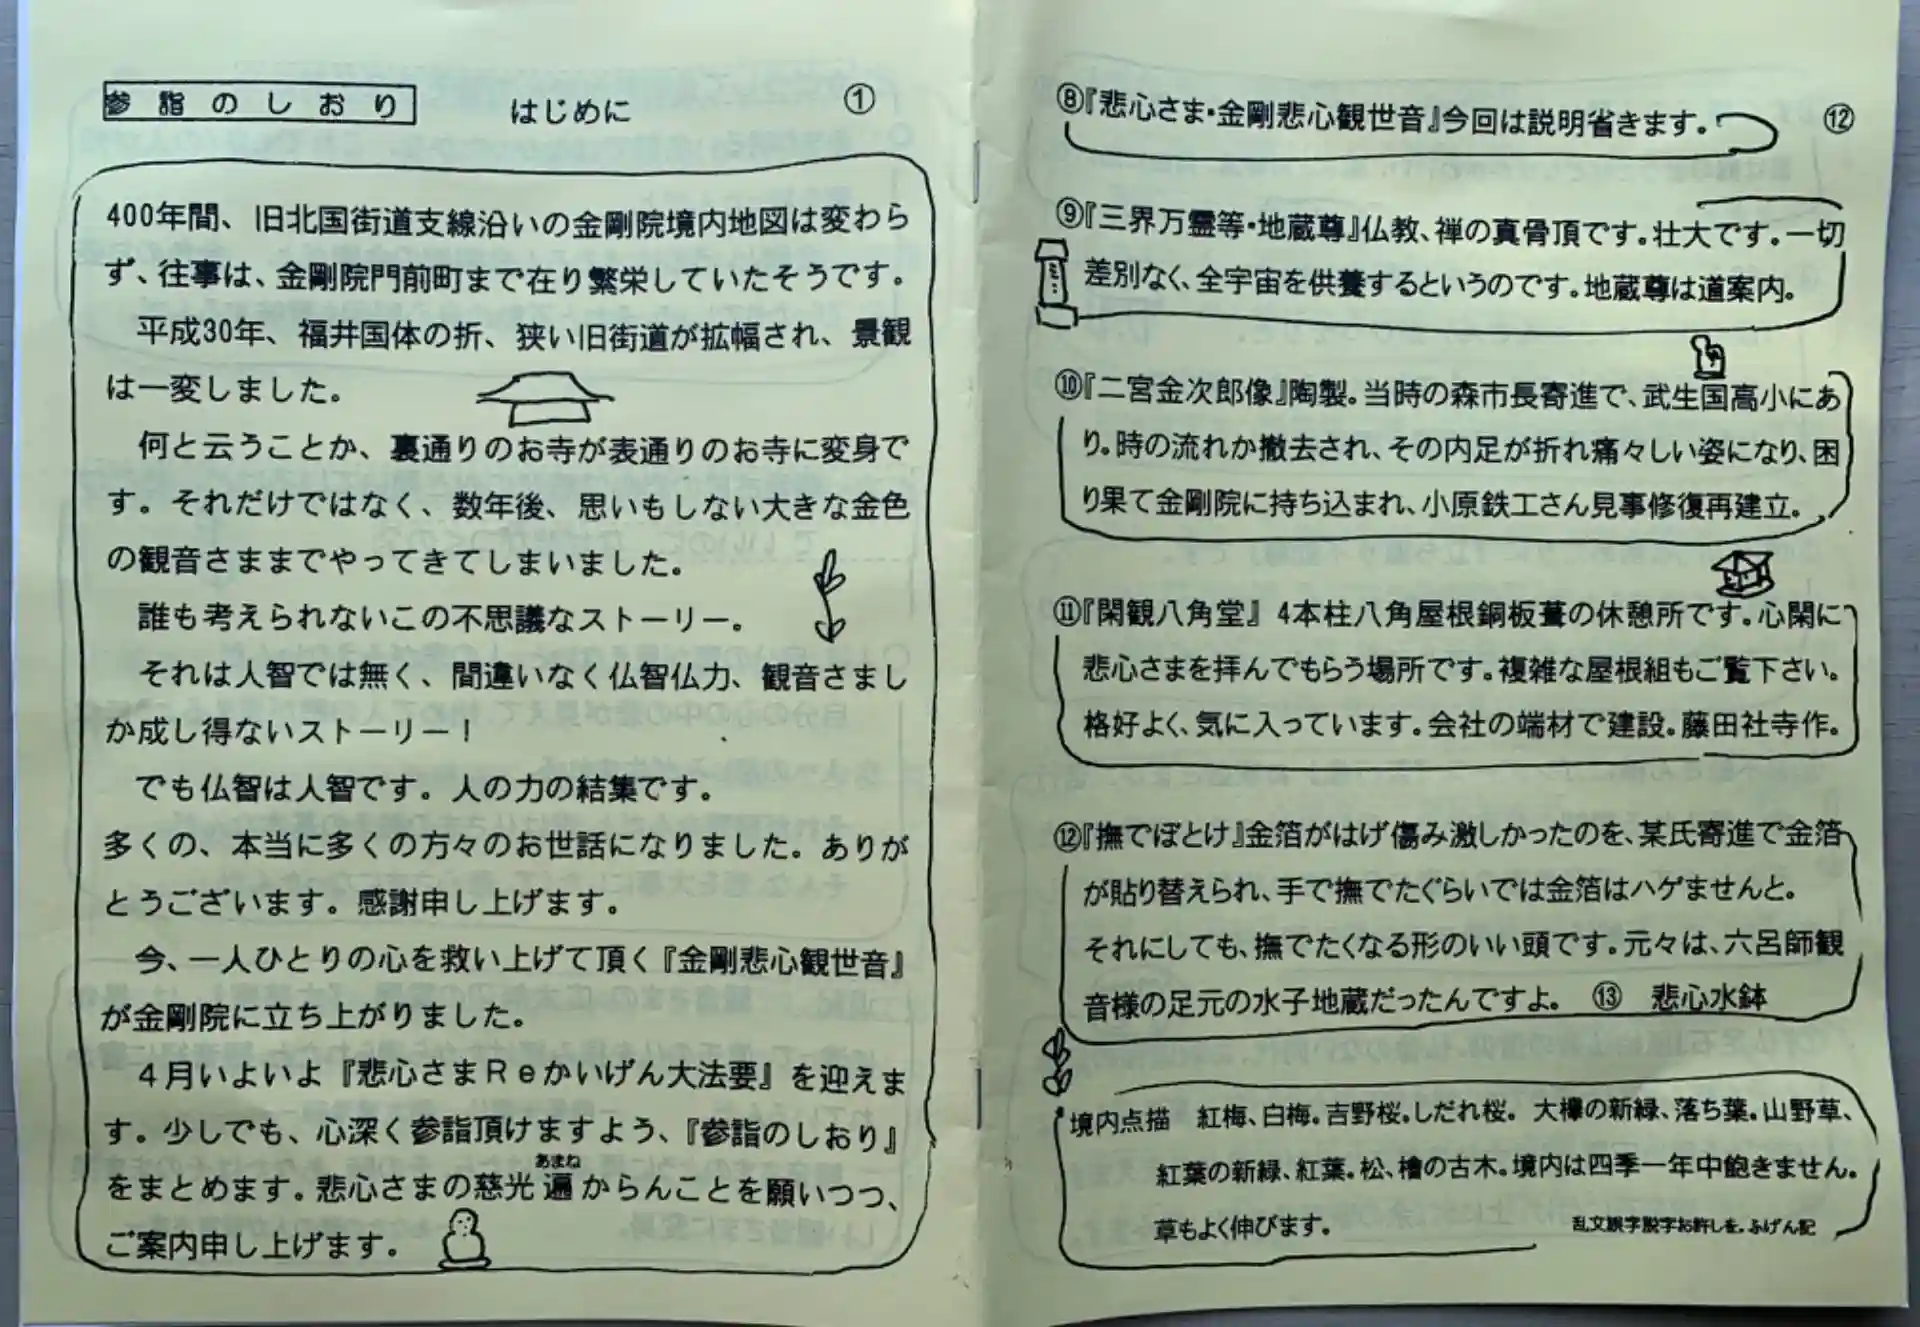 参詣のしおり　はじめに　①
400年間、旧北国街道支線沿いの金剛院境内地図は変わら
ず、往事は、金剛院門前町まで在り繁栄していたそうです。
平成30年、福井国体の折、狭い旧街道が拡幅され、景観
は一変しました。
何と云うことか、裏通りのお寺が表通りのお寺に変身で
す。それだけではなく、数年後、思いもしない大きな金色
の観音さままでやってきてしまいました。
誰も考えられないこの不思議なストーリー。
それは人智では無く、間違いなく仏智仏力、観音さまし
か成し得ないストーリー！
でも仏智は人智です。人の力の結集です。
多くの、本当に多くの方々のお世話になりました。ありが
とうございます。感謝申し上げます。
今、一人ひとりの心を救い上げて頂く『金剛悲心観世音』
が金剛院に立ち上がりました。
４月いよいよ『悲心さまＲｅかいげん大法要』を迎えま
す。少しでも、心深く参詣頂けますよう、『参詣のしおり』
あまね
をまとめます。悲心さまの慈光遍からんことを願いつつ、
ご案内申し上げます。
⑫
⑧『悲心さま・金剛悲心観世音』今回は説明省きます。
⑨『三界万霊等・地蔵尊』仏教、禅の真骨頂です。壮大です。一切
差別なく、全宇宙を供養するというのです。地蔵尊は道案内。
⑩『二宮金次郎像』陶製。当時の森市長寄進で、武生国高小にあ
り。時の流れか撤去され、その内足が折れ痛々しい姿になり、困
り果て金剛院に持ち込まれ、小原鉄工さん見事修復再建立。
⑪『閑観八角堂』 4本柱八角屋根銅板葺の休憩所です。心閑に
悲心さまを拝んでもらう場所です。複雑な屋根組もご覧下さい。
格好よく、気に入っています。会社の端材で建設。藤田社寺作。
⑫『撫でぼとけ』金箔がはげ傷み激しかったのを、某氏寄進で金箔
が貼り替えられ、手で撫でたぐらいでは金箔はハゲませんと。
それにしても、撫でたくなる形のいい頭です。元々は、六呂師観
音様の足元の水子地蔵だったんですよ。　⑬　悲心水鉢
境内点描　紅梅、白梅。吉野桜。しだれ桜。 大欅の新緑、落ち葉。山野草、
紅葉の新緑、紅葉。松、檜の古木。境内は四季一年中飽きません。
草もよく伸びます。　乱文誤字脱字お許しを。ふげん記